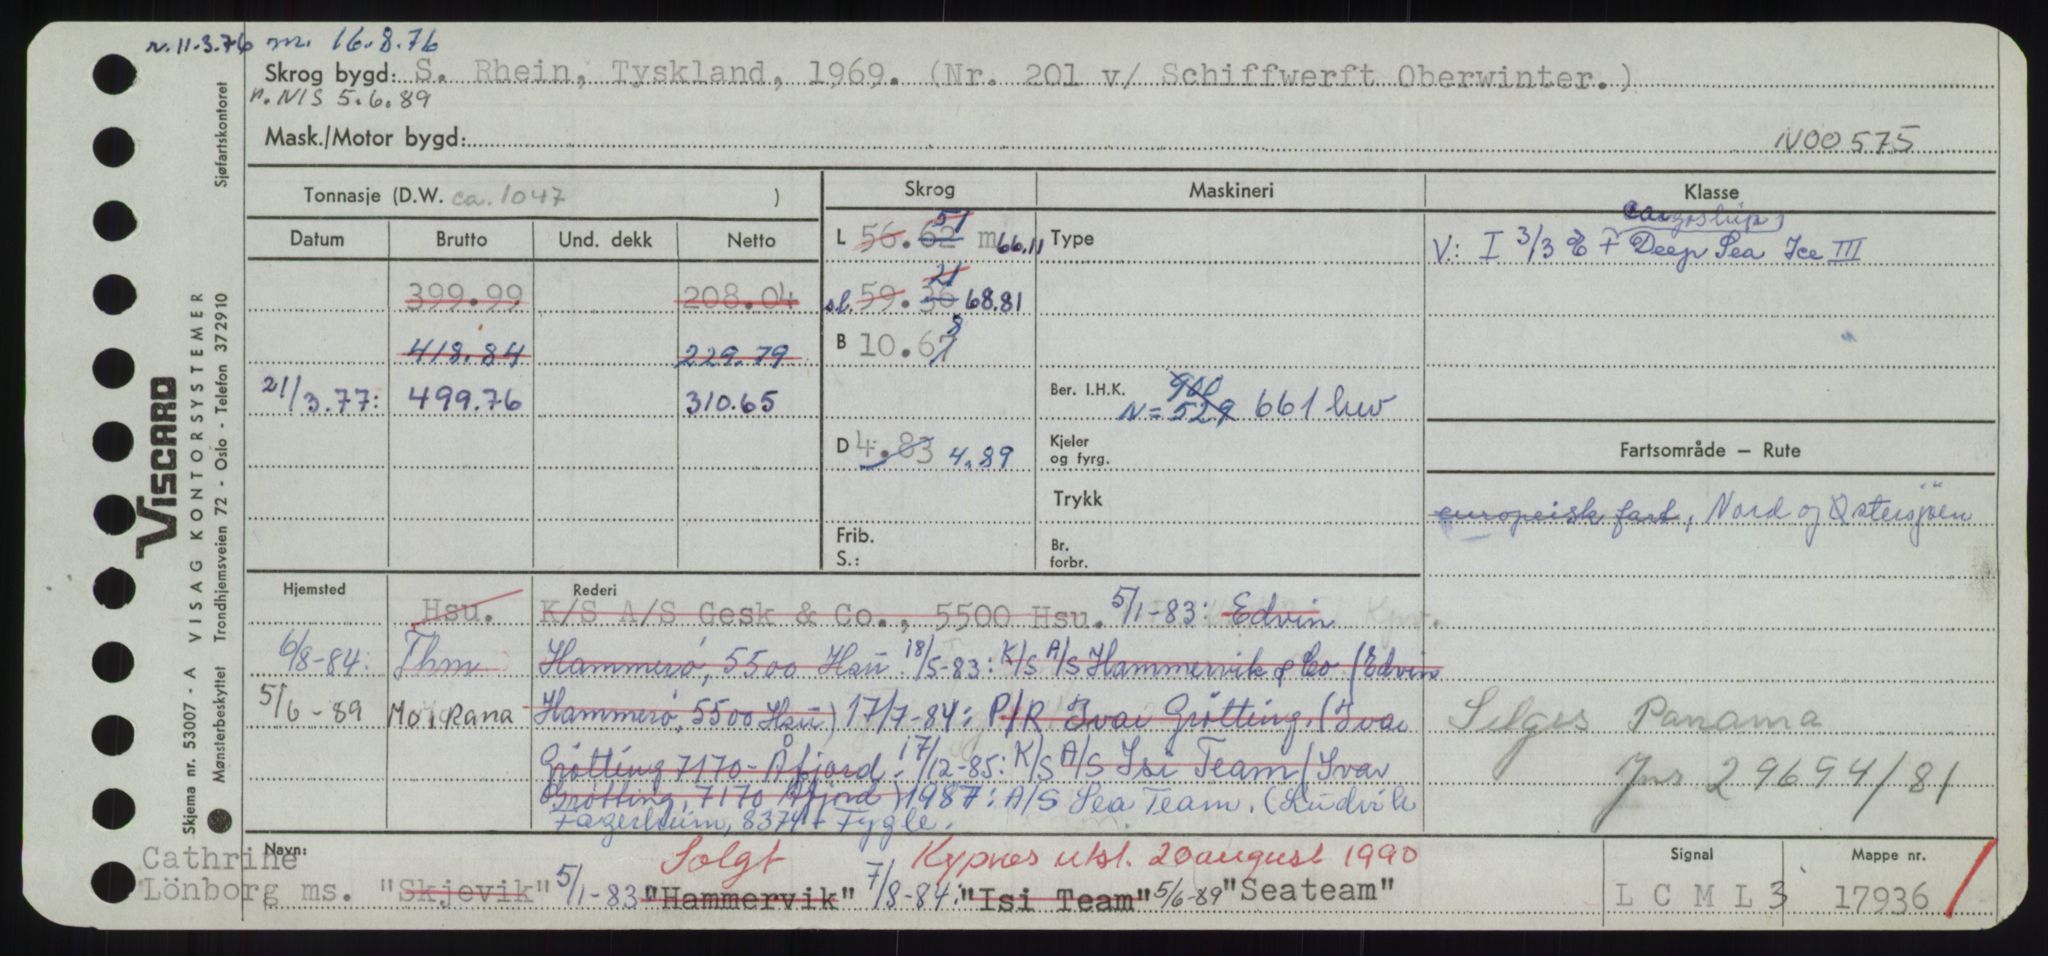 r. 11.3.76 m. 16.8.76
Skrog bygd: S. Rhein, Tyskland, 1969. (Nr. 201 v/ Schiffwerft Oberwinter.)
n. NIS 5.6.89
Mask./Motor bygd: N00575
Tonnasje (D.W. ca. 1047 ) Skrog Maskineri Klasse
Datum Brutto Und. dekk Netto
L 56.62 51 m 66.11 Type
cargoship
V: I 3/3 E + Deep Sea Ice III
399.99 208.04 sl. 59.36 21 68.81
418.84 229.79 B 10.67 8
21/3.77: 499.76 310.65
Ber. I.H.K. 900
N = 529 661 hw
D 4.83 4.89
Kjeler
og fyrg.
Fartsområde — Rute
Trykk
europeisk fart, Nord og Østersjøen
Frib.
S.:
Br.
forbr.
Hjemsted Rederi
Hsu. K/S A/S Gesk & Co., 5500 Hsu. 5/1-83: Edvin
6/8-84: Thm Hammerø, 5500 Hsu 18/5-83: K/S A/S Hammervik & Co (Edvin
5/6-89 Mo i Rana Hammerø, 5500 Hsu) 17/7-84: P/R Ivar Grøtting. (Ivar
Grøtting 7170-Åfjord. 17/12-85: K/S A/S Isi Team (Ivar
Grøtting, 7170 Åfjord) 1987: A/S Sea Team. (Ludvik
Fagerheim, 8374 Fygle.
Selges Panama
Jnr 29694/81
Navn: Solgt Kypnos utst. 20 august 1990 Signal Mappe nr.
Cathrine
Lönborg ms. "Skjevik" 5/1-83 "Hammervik" 7/8-84: "Isi Team" 5/6-89 "Seateam" LCML3 17936
Skjema nr. 53007 - A VISAG KONTORSYSTEMER
VISCARD
Mønsterbeskyttet Trondhjemsveien 72 - Oslo - Telefon 372910 Sjøfartskontoret